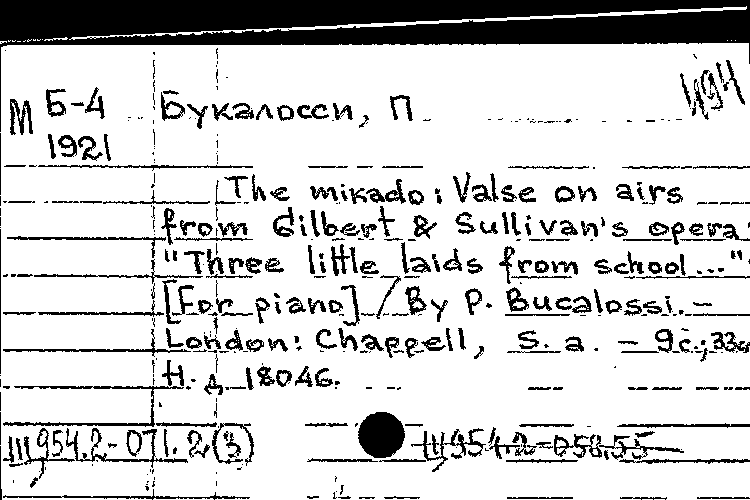 М Б-4 Букалосси, П 494
1921
The mikado: Valse on airs
from Gilbert & Sullivan's opera:
"Three little laids from school..."
[For piano] / By P. Bucalossi. –
London: Chappell, s. a. – 9с.; 33см
Н. д. 18046.
Ш954.2-071.2(3) Ш954.2-058.55